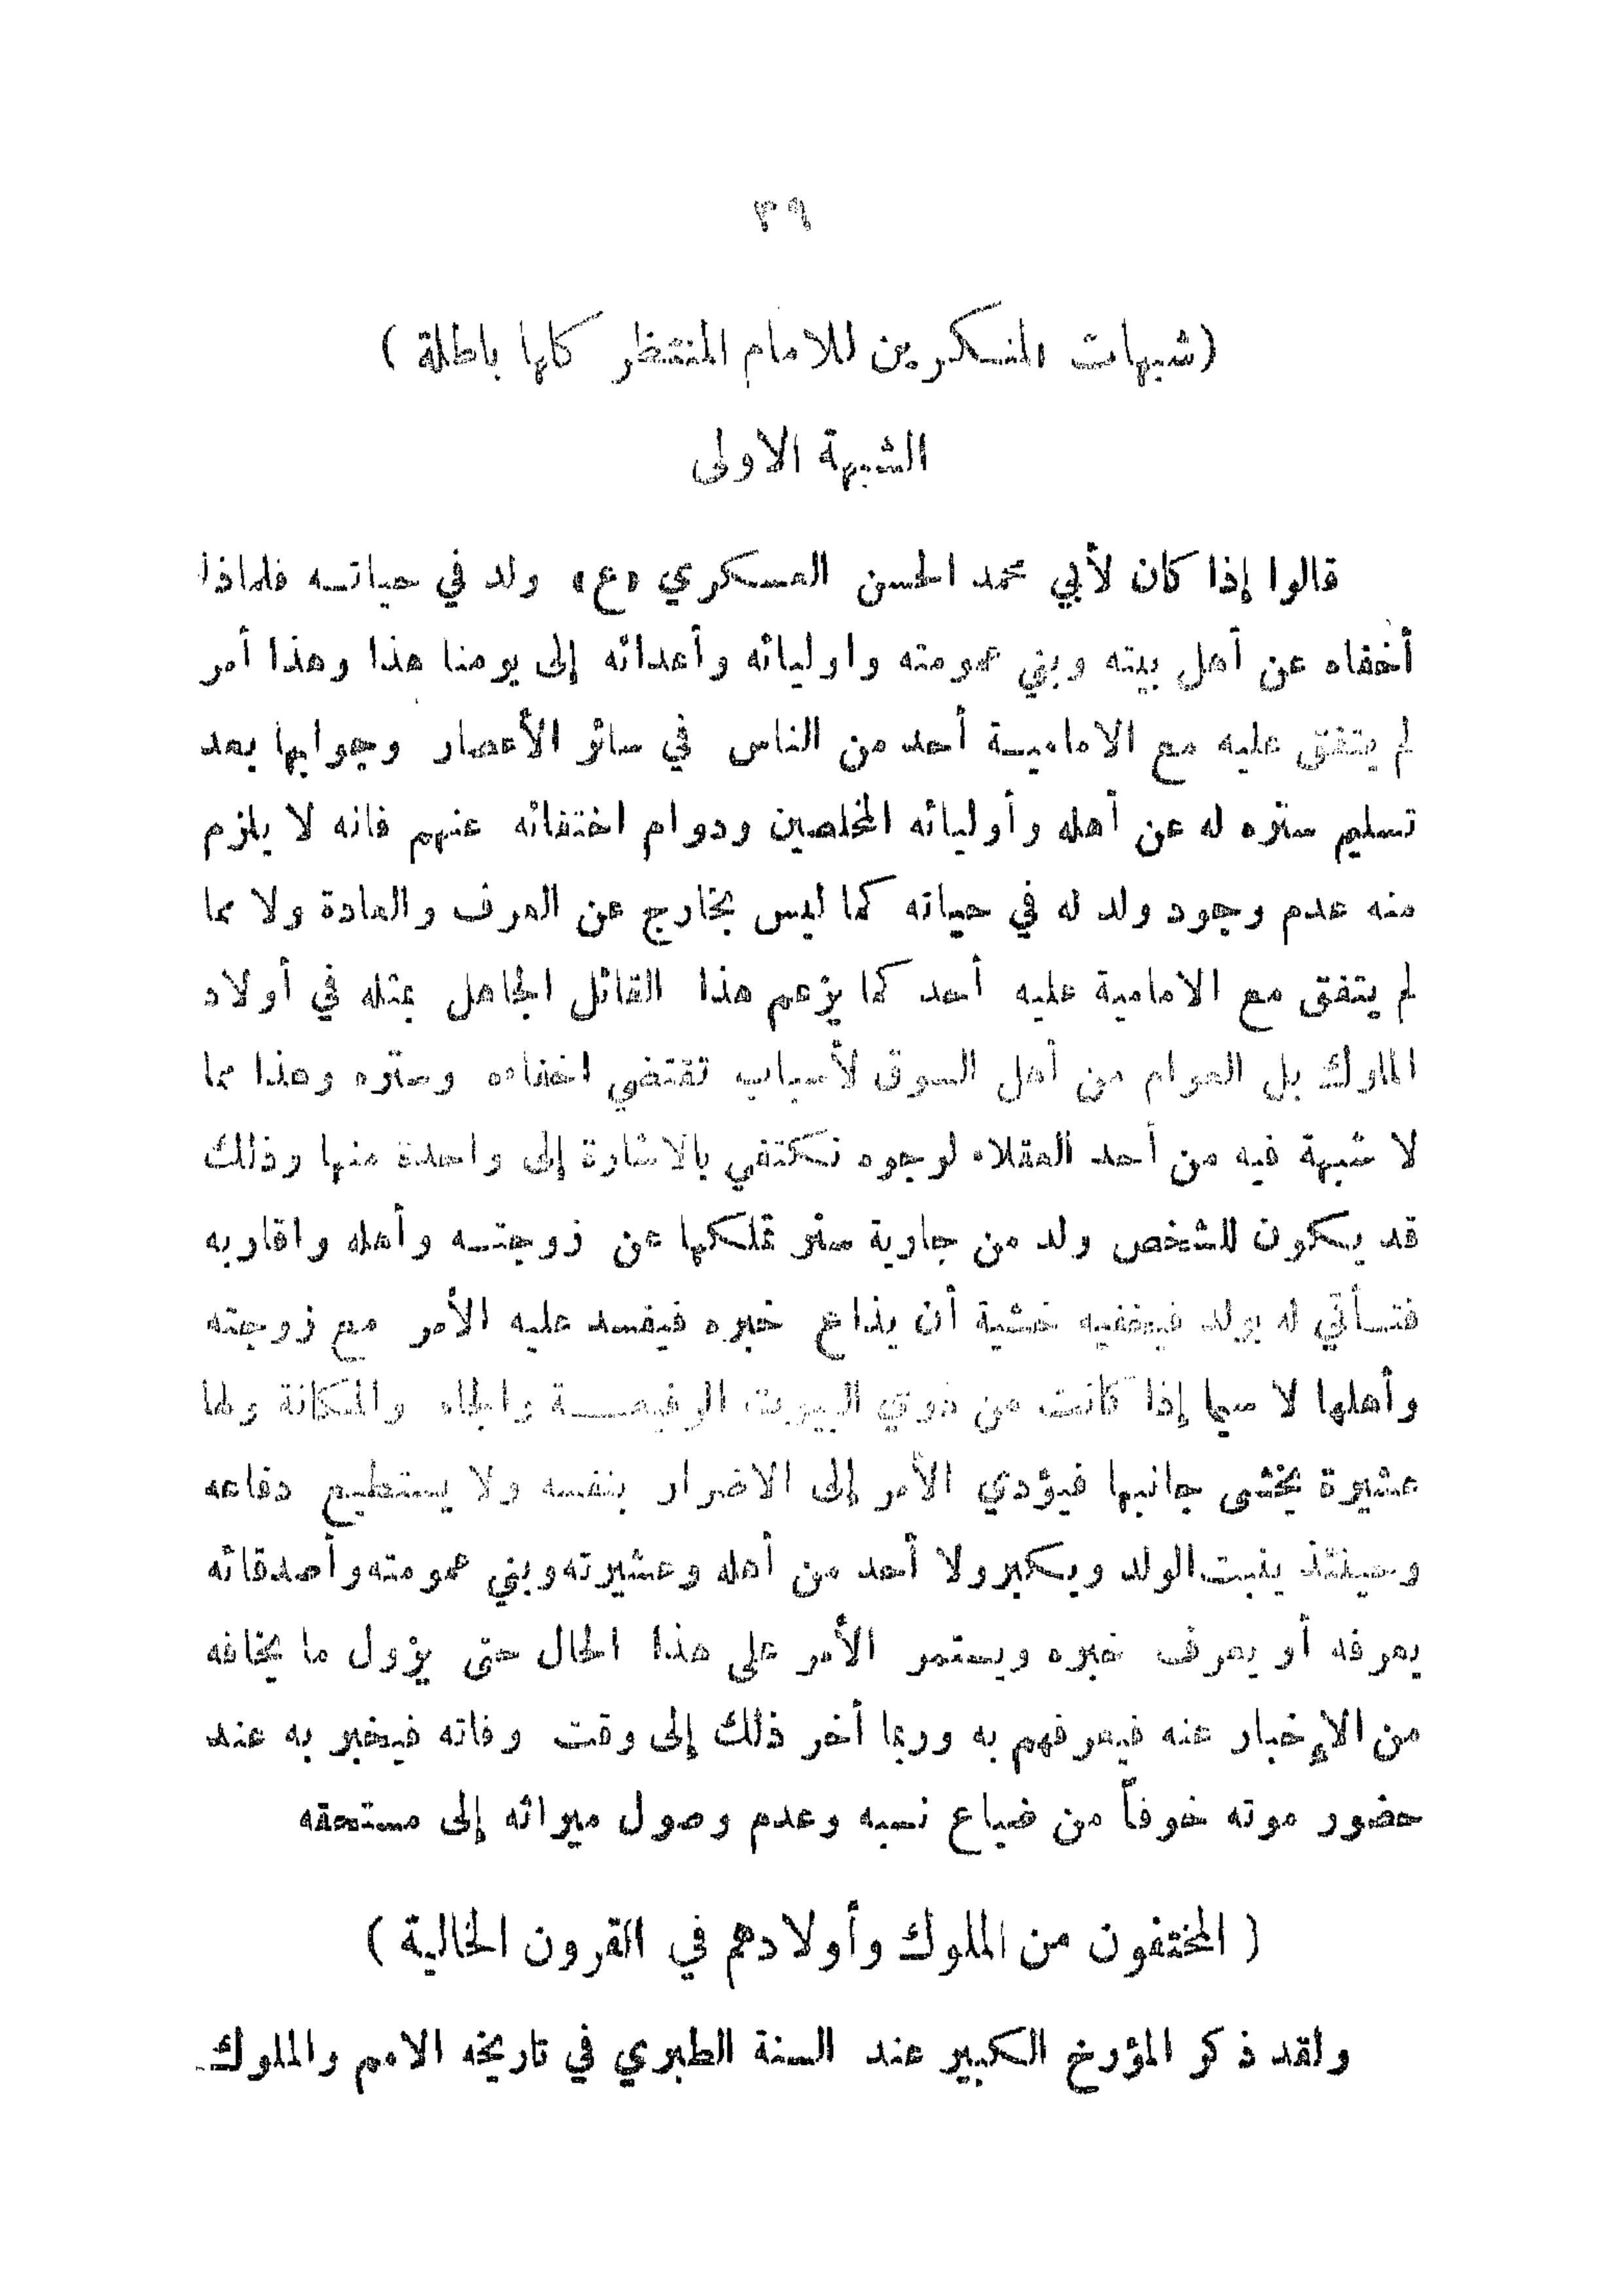 ٣٩
(شبهات المنكرين للامام المنتظر كلها باطلة )
الشبهة الاولى
قالوا إذا كان لأبي محمد الحسن العسكري «ع» ولد في حياته فلماذا
أخفاه عن أهل بيته وبني عمومته واوليائه وأعدائه إلى يومنا هذا وهذا أمر
لم يتفق عليه مع الامامية أحد من الناس في سائر الأعصار وجوابها بعد
تسليم ستره له عن أهله وأوليائه المخلصين ودوام اختفائه عنهم فانه لا يلزم
منه عدم وجود ولد له في حياته كما ليس بخارج عن العرف والعادة ولا مما
لم يتفق مع الامامية عليه أحد كما يزعم هذا القائل الجاهل بمثله في أولاد
الملوك بل العوام من أهل السوق لأسباب تقتضي اخفاءه وستره وهذا مما
لا شبهة فيه من أحد العقلاء لوجوه نكتفي بالاشارة إلى واحدة منها وذلك
قد يكون للشخص ولد من جارية ستر تملكها عن زوجته وأهله واقاربه
فتأتي له بولد فيخفيه خشية أن يذاع خبره فيفسد عليه الأمر مع زوجته
وأهلها لا سيما إذا كانت من ذوي البيوت الرفيعة والجاه والمكانة ولها
عشيرة يخشى جانبها فيؤدي الأمر إلى الاضرار بنفسه ولا يستطيع دفاعه
وحينئذ ينبت الولد ويكبر ولا أحد من أهله وعشيرته وبني عمومته وأصدقائه
يعرفه أو يعرف خبره ويستمر الأمر على هذا الحال حتى يزول ما يخافه
من الإخبار عنه فيعرفهم به وربما أخر ذلك إلى وقت وفاته فيخبر به عند
حضور موته خوفاً من ضياع نسبه وعدم وصول ميراثه إلى مستحقه
( المختفون من الملوك وأولادهم في القرون الخالية )
ولقد ذكر المؤرخ الكبير عند السنة الطبري في تاريخه الامم والملوك